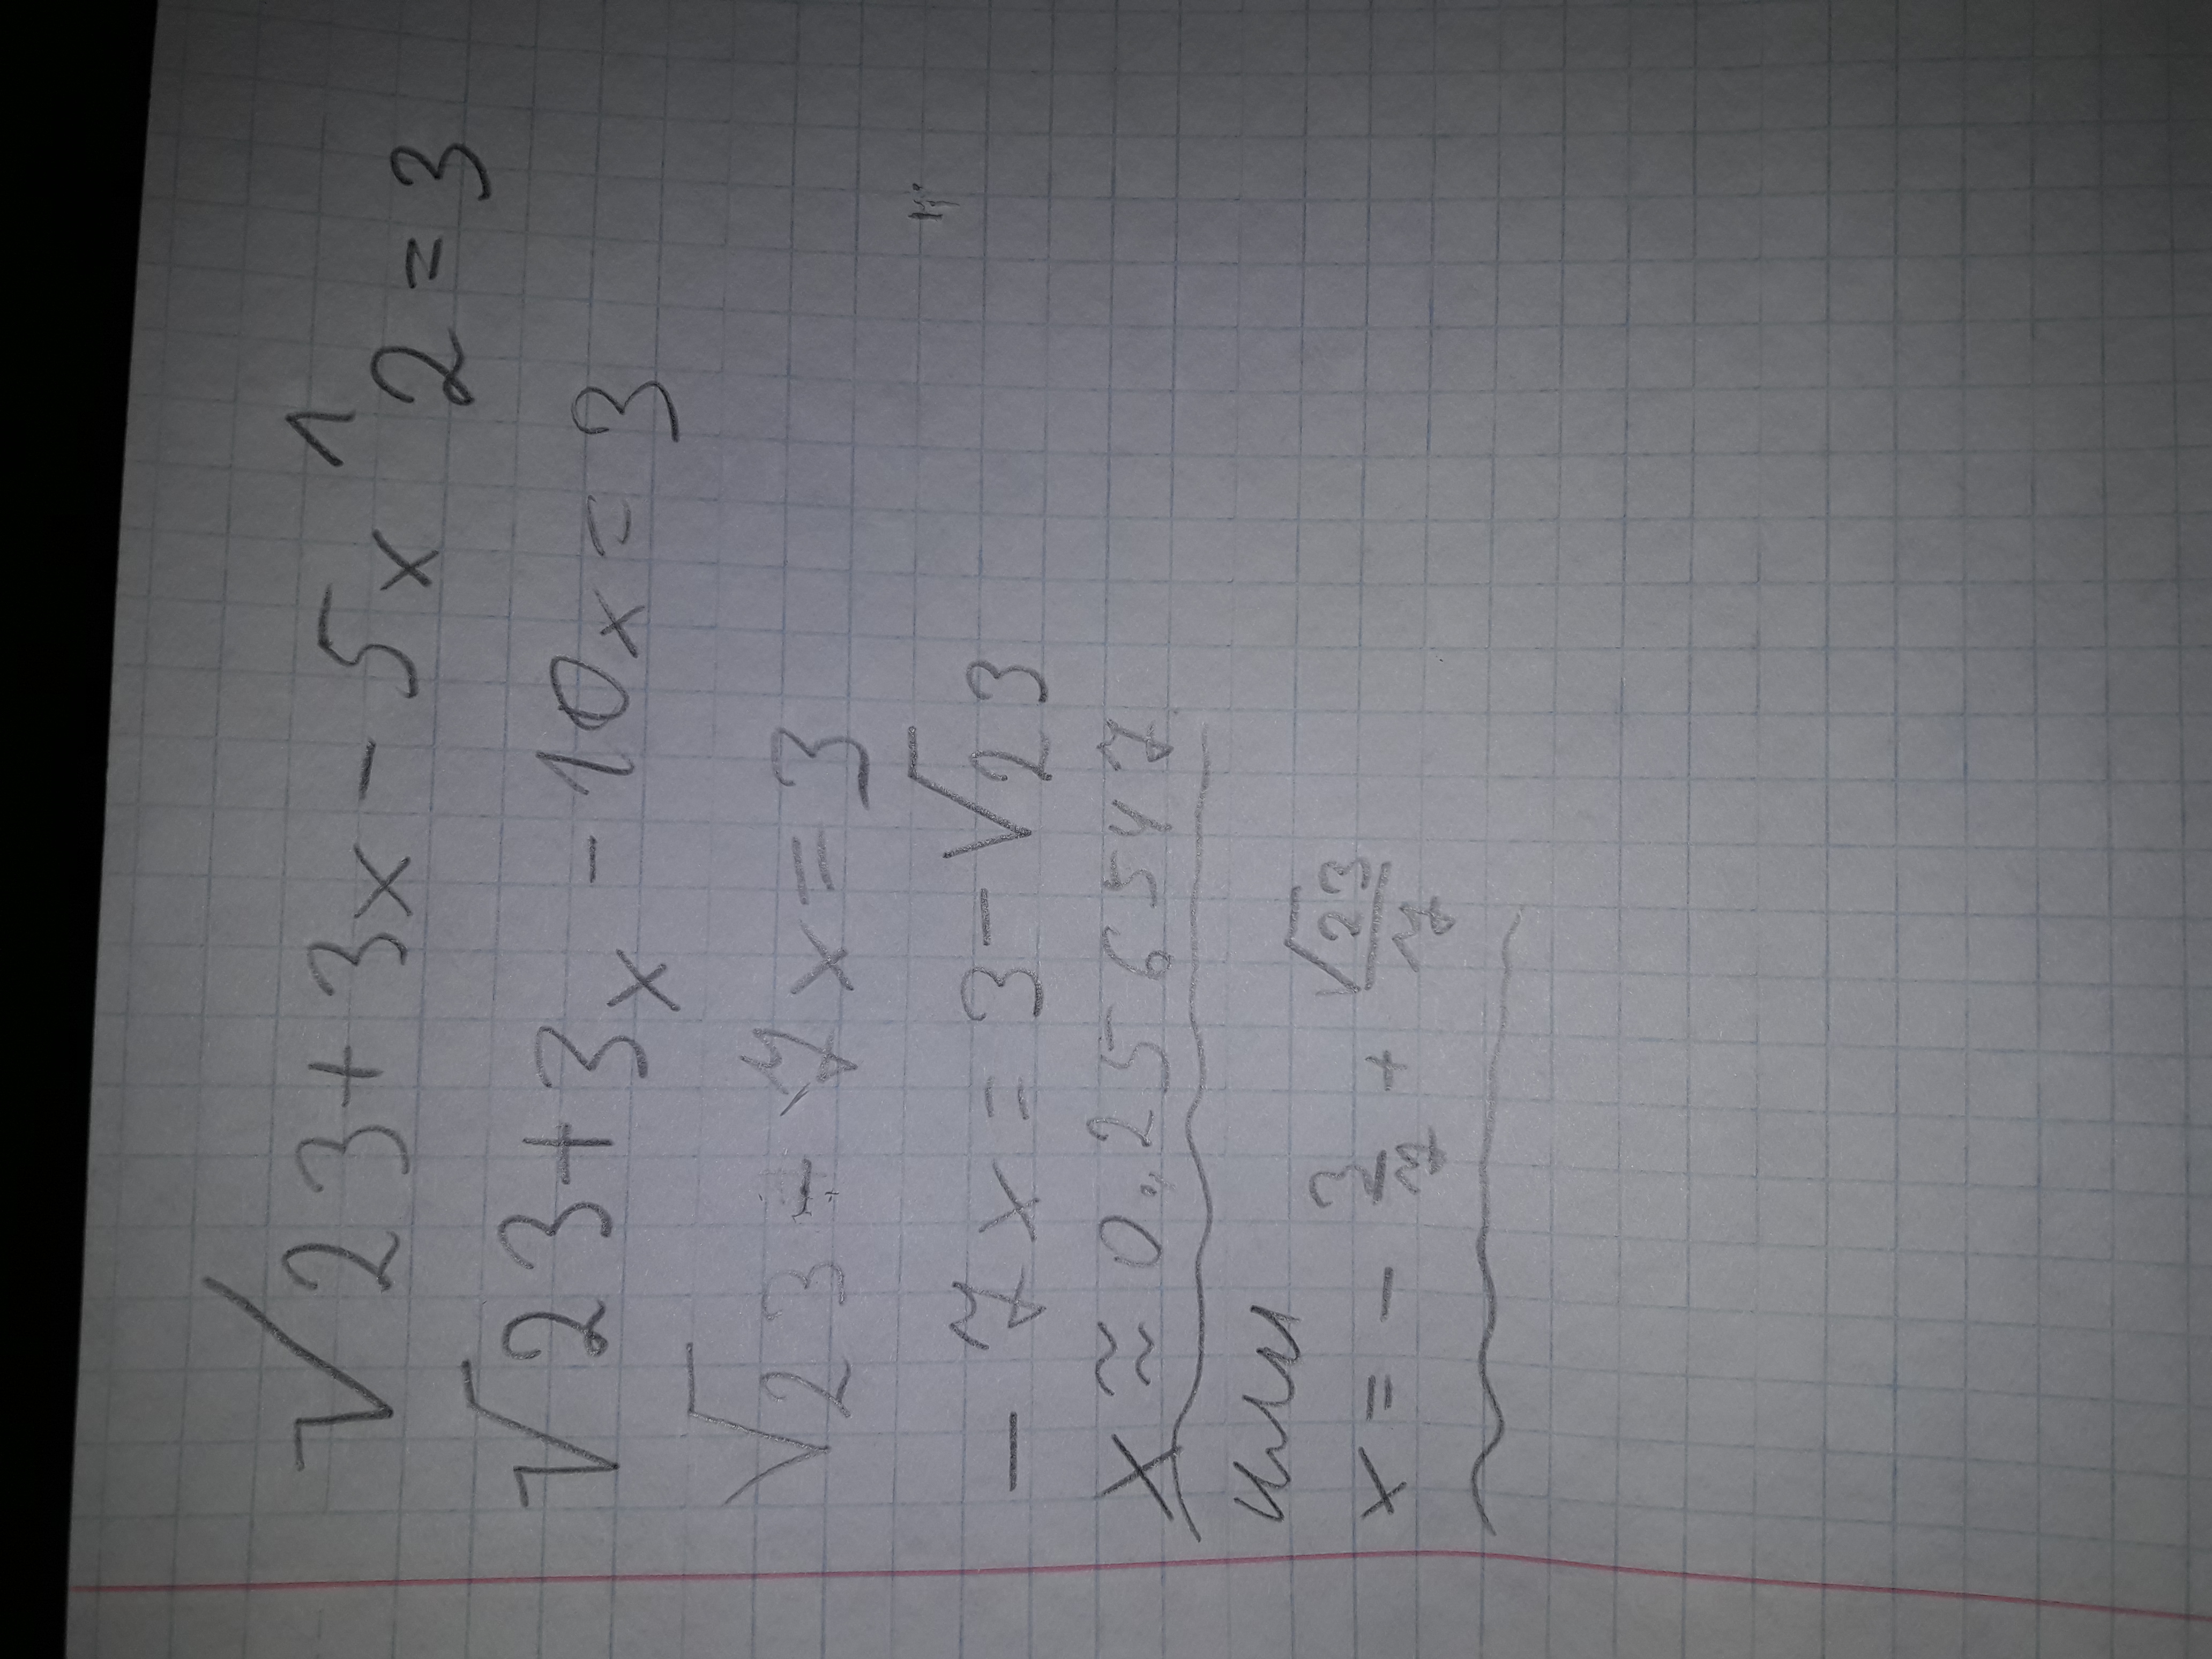 √23+3x-5x^2=3
√23+3x-10x=3
√23-7x=3
-7x=3-√23
x≈0,256547
или
x=-3/7+√23/7